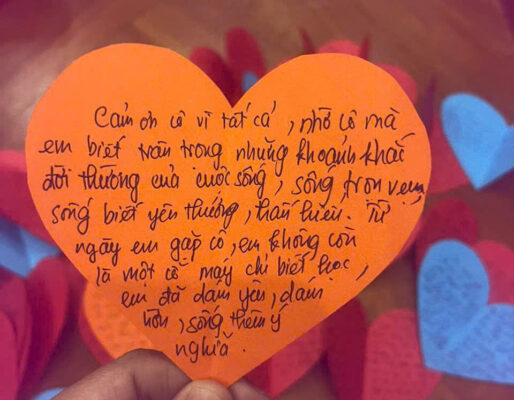 Cảm ơn cô vì tất cả, nhờ cô mà
em biết trân trọng những khoảnh khắc
đời thường của cuộc sống, sống trọn vẹn,
sống biết yêu thương, thấu hiểu. Từ
ngày em gặp cô, em không còn
là một cỗ máy chỉ biết học,
em đã dám yêu, dám
hờn, sống thêm ý
nghĩa.